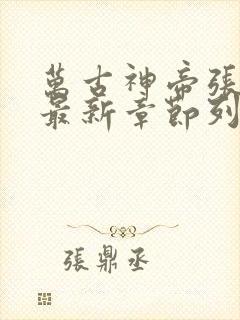 萬古神帝張
最新章節列
張鼎丞